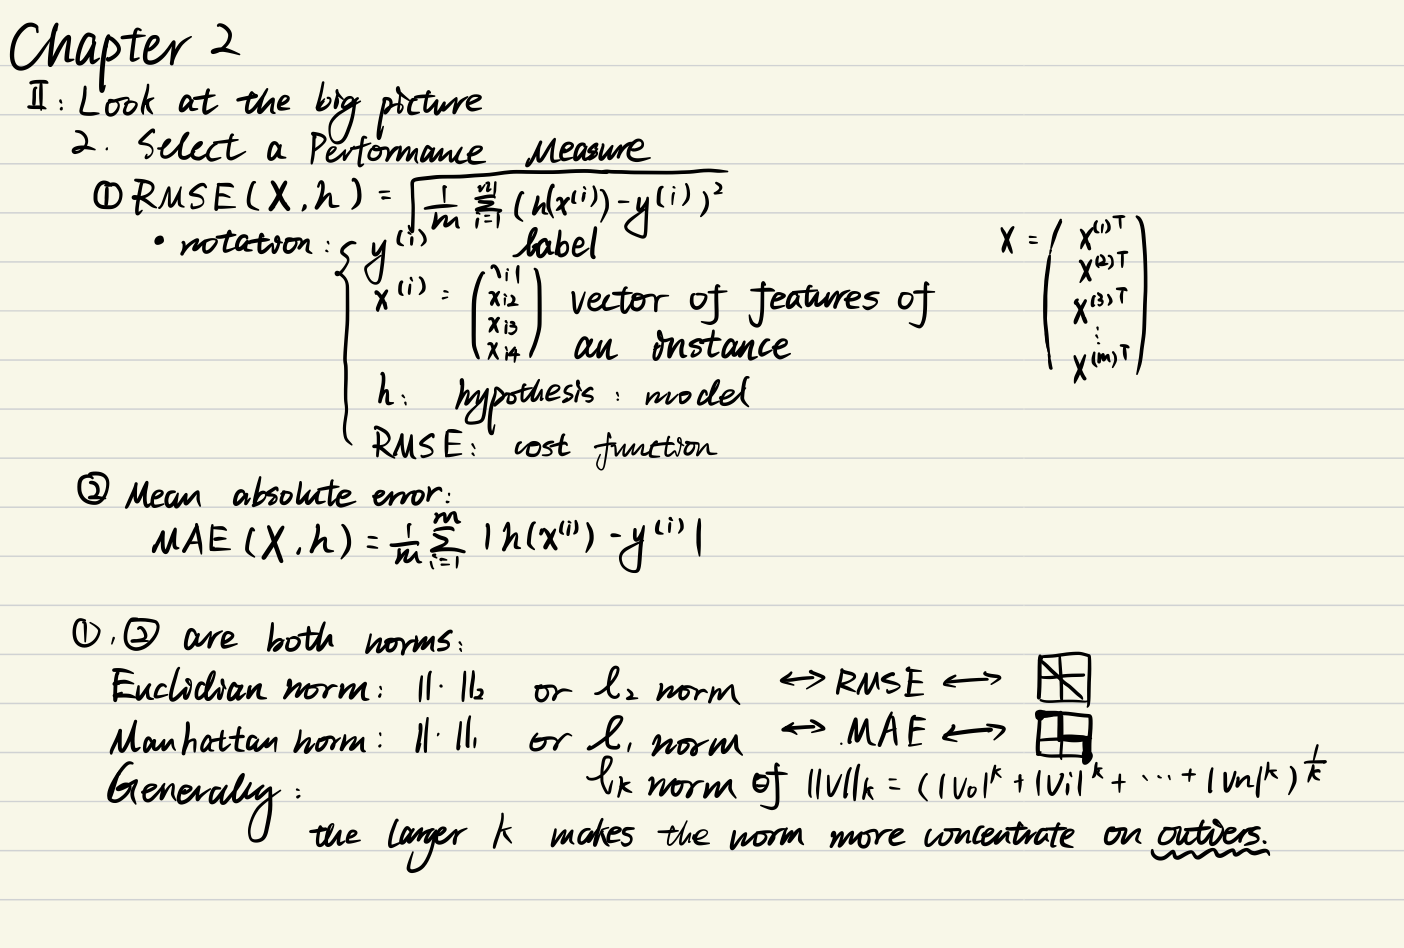 Chapter 2
II: Look at the big picture
2. Select a Performance Measure
① RMSE(X,h) = √(1/m Σ_{i=1}^{m} (h(x^(i)) - y^(i))²)
• notation: { y^(i) label
x^(i) = (x_i1 x_i2 x_i3 x_i4) vector of features of an instance
X = (x^(1)T x^(2)T x^(3)T ⋮ x^(m)T)
h: hypothesis: model
RMSE: cost function
② Mean absolute error:
MAE(X,h) = 1/m Σ_{i=1}^{m} |h(x^(i)) - y^(i)|
①,② are both norms:
Euclidian norm: ||·||₂ or l₂ norm ↔ RMSE ↔
Manhattan norm: ||·||₁ or l₁ norm ↔ MAE ↔
Generally: l_k norm of ||V||_k = (|V₀|^k + |V₁|^k + ··· + |Vn|^k)^{1/k}
the larger k makes the norm more concentrate on outliers.